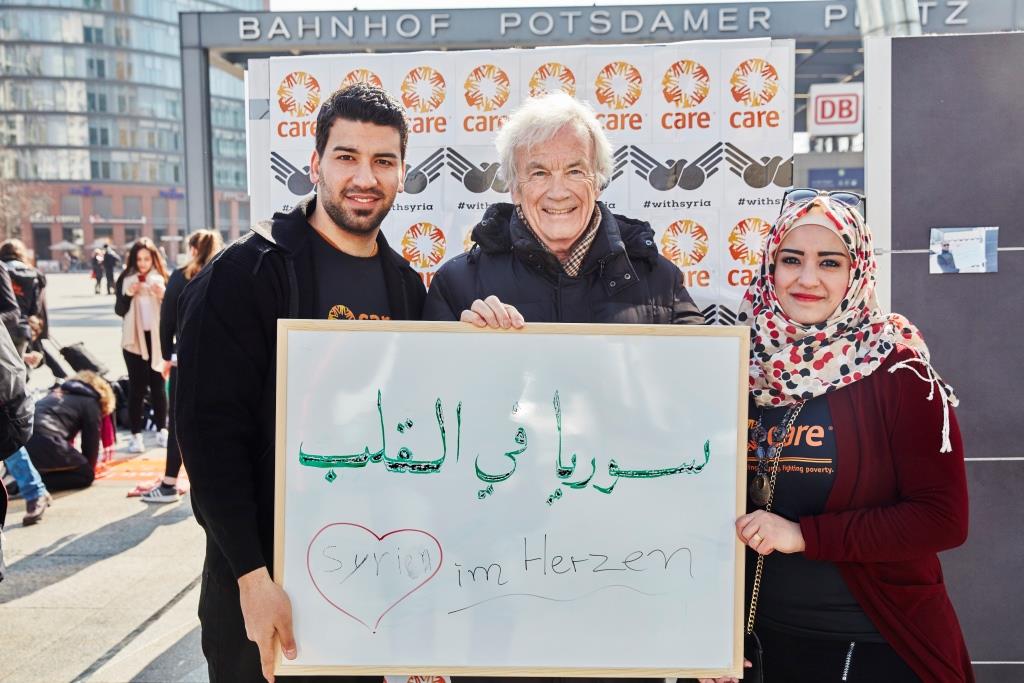 BAHNHOF POTSDAMER PLATZ
care care care care care care care
DB
#withsyria
care care care
care
سوريا في القلب
Syrien im Herzen
care
fighting poverty.